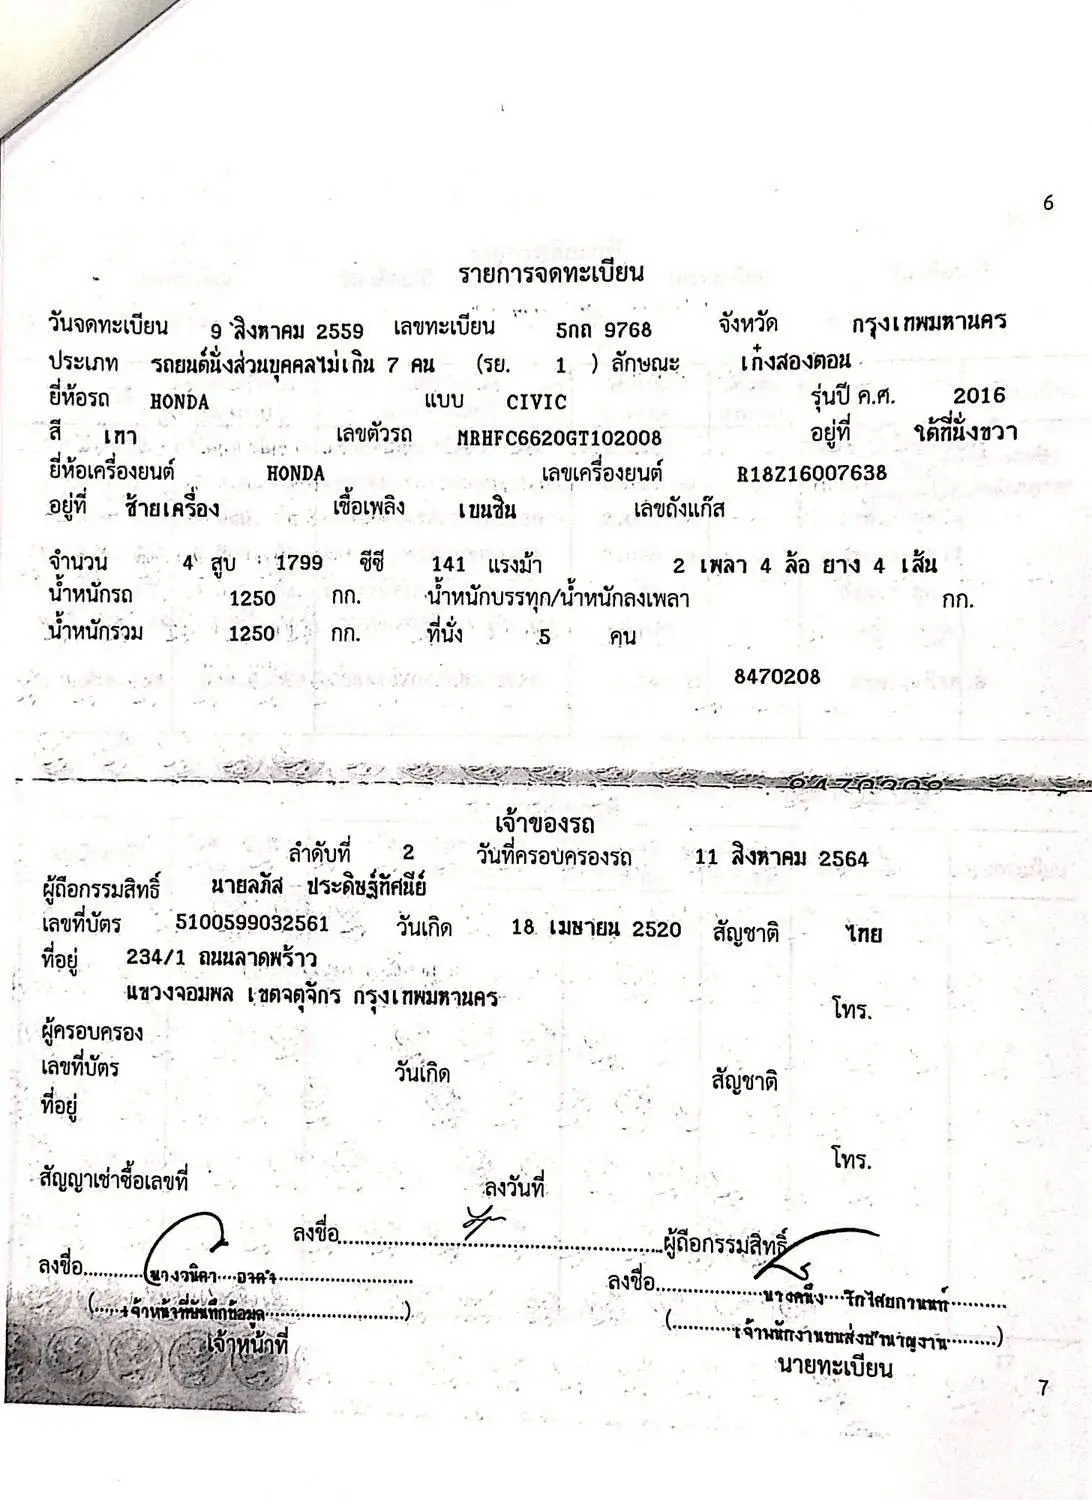 6
รายการจดทะเบียน
วันจดทะเบียน 9 สิงหาคม 2559 เลขทะเบียน 5กถ 9768 จังหวัด กรุงเทพมหานคร
ประเภท รถยนต์นั่งส่วนบุคคลไม่เกิน 7 คน (รย. 1 ) ลักษณะ เก๋งสองตอน
ยี่ห้อรถ HONDA แบบ CIVIC รุ่นปี ค.ศ. 2016
สี เทา เลขตัวรถ MRHFC6620GT102008 อยู่ที่ ใต้ที่นั่งขวา
ยี่ห้อเครื่องยนต์ HONDA เลขเครื่องยนต์ R18Z16007638
อยู่ที่ ซ้ายเครื่อง เชื้อเพลิง เบนซิน เลขถังแก๊ส
จำนวน 4 สูบ 1799 ซีซี 141 แรงม้า 2 เพลา 4 ล้อ ยาง 4 เส้น
น้ำหนักรถ 1250 กก. น้ำหนักบรรทุก/น้ำหนักลงเพลา กก.
น้ำหนักรวม 1250 กก. ที่นั่ง 5 คน
8470208
เจ้าของรถ
ลำดับที่ 2 วันที่ครอบครองรถ 11 สิงหาคม 2564
ผู้ถือกรรมสิทธิ์ นายลภัส ประดิษฐ์ทัศนีย์
เลขที่บัตร 5100599032561 วันเกิด 18 เมษายน 2520 สัญชาติ ไทย
ที่อยู่ 234/1 ถนนลาดพร้าว
แขวงจอมพล เขตจตุจักร กรุงเทพมหานคร
โทร.
ผู้ครอบครอง
เลขที่บัตร วันเกิด สัญชาติ
ที่อยู่
โทร.
สัญญาเช่าซื้อเลขที่ ลงวันที่
ลงชื่อ ผู้ถือกรรมสิทธิ์
ลงชื่อ นางวนิดา ลงชื่อ นางคนึง
(เจ้าหน้าที่บันทึกข้อมูล) (เจ้าพนักงานขนส่งชำนาญงาน)
เจ้าหน้าที่ นายทะเบียน
7